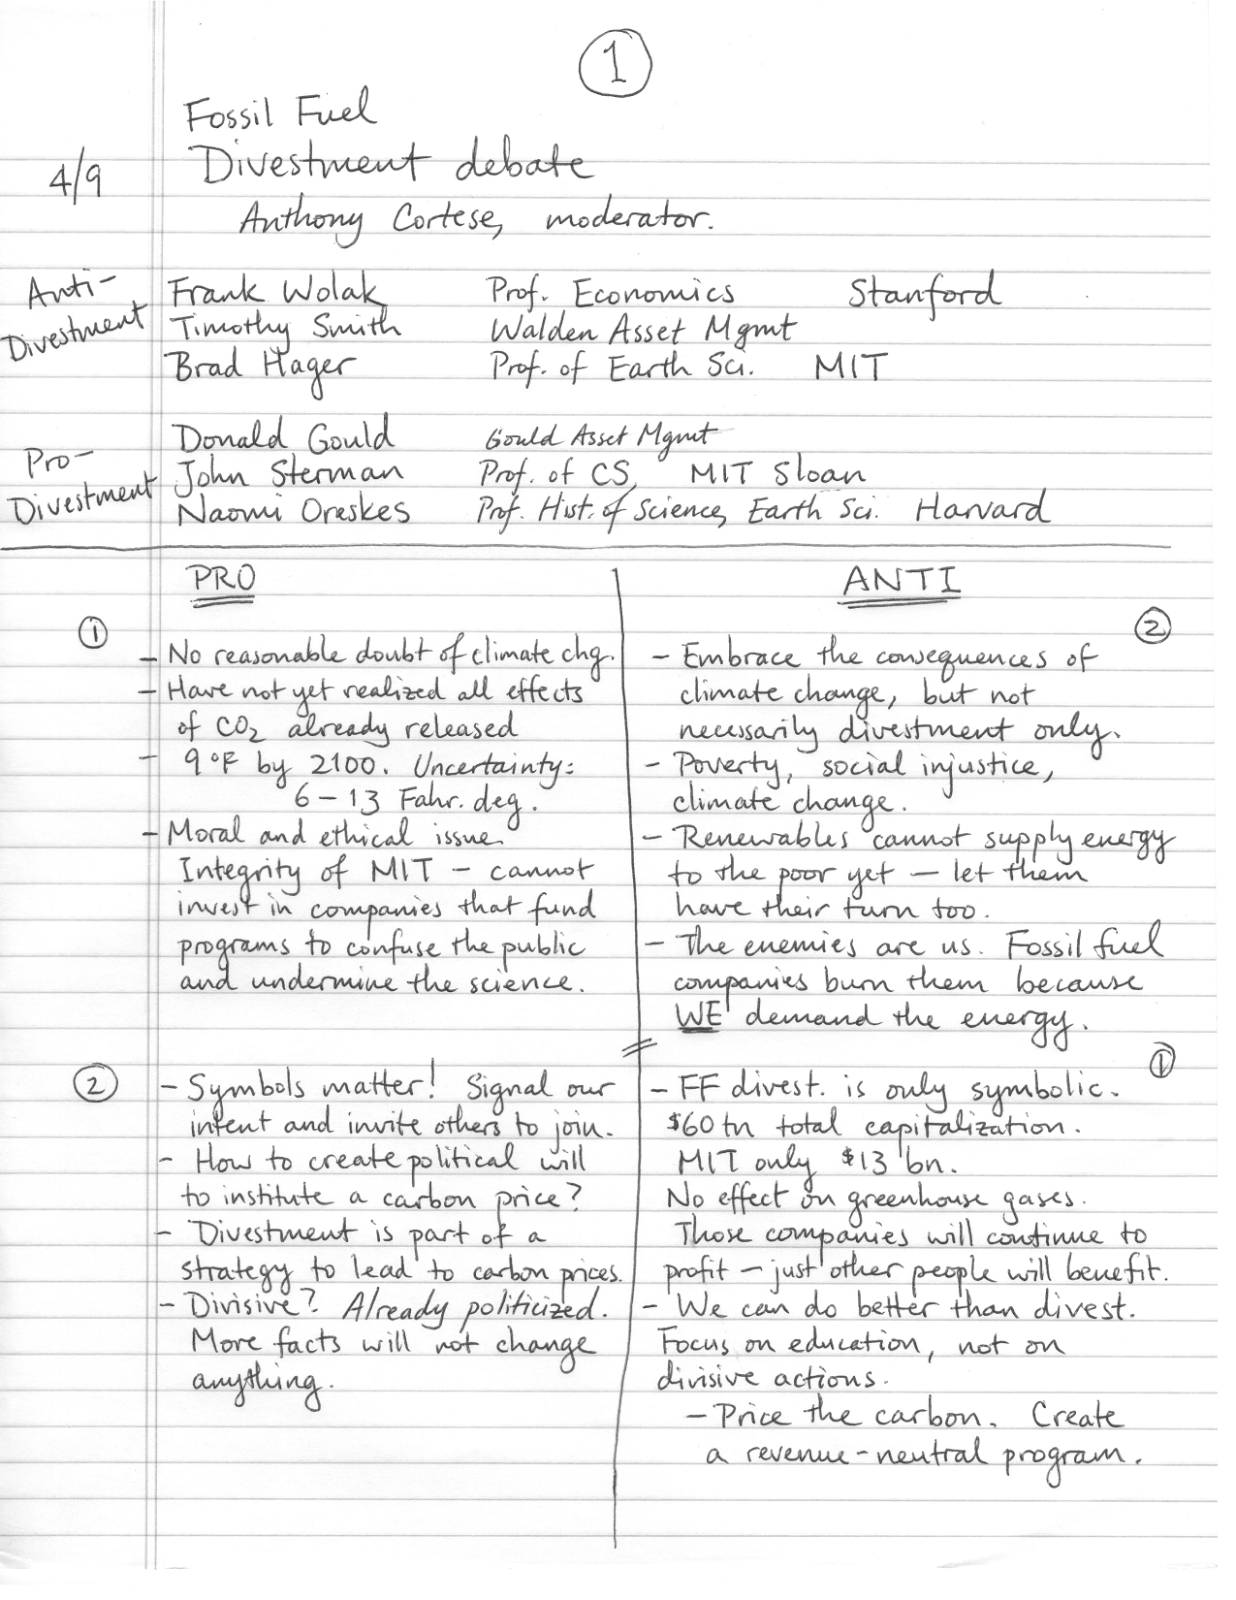 1
Fossil Fuel
4/9 Divestment debate
Anthony Cortese, moderator.
Anti-Divestment
Frank Wolak Prof. Economics Stanford
Timothy Smith Walden Asset Mgmt
Brad Hager Prof. of Earth Sci. MIT
Pro-Divestment
Donald Gould Gould Asset Mgmt
John Sterman Prof. of CS, MIT Sloan
Naomi Oreskes Prof. Hist. of Science, Earth Sci. Harvard
PRO
1
- No reasonable doubt of climate chg.
- Have not yet realized all effects
of CO2 already released
- 9°F by 2100. Uncertainty:
6-13 Fahr. deg.
- Moral and ethical issue.
Integrity of MIT - cannot
invest in companies that fund
programs to confuse the public
and undermine the science.
2
- Symbols matter! Signal our
intent and invite others to join.
- How to create political will
to institute a carbon price?
- Divestment is part of a
strategy to lead to carbon prices.
- Divisive? Already politicized.
More facts will not change
anything.
ANTI
2
- Embrace the consequences of
climate change, but not
necessarily divestment only.
- Poverty, social injustice,
climate change.
- Renewables cannot supply energy
to the poor yet - let them
have their turn too.
- The enemies are us. Fossil fuel
companies burn them because
WE demand the energy.
1
- FF divest. is only symbolic.
$60 tn total capitalization.
MIT only $13 bn.
No effect on greenhouse gases.
Those companies will continue to
profit - just other people will benefit.
- We can do better than divest.
Focus on education, not on
divisive actions.
- Price the carbon. Create
a revenue-neutral program.